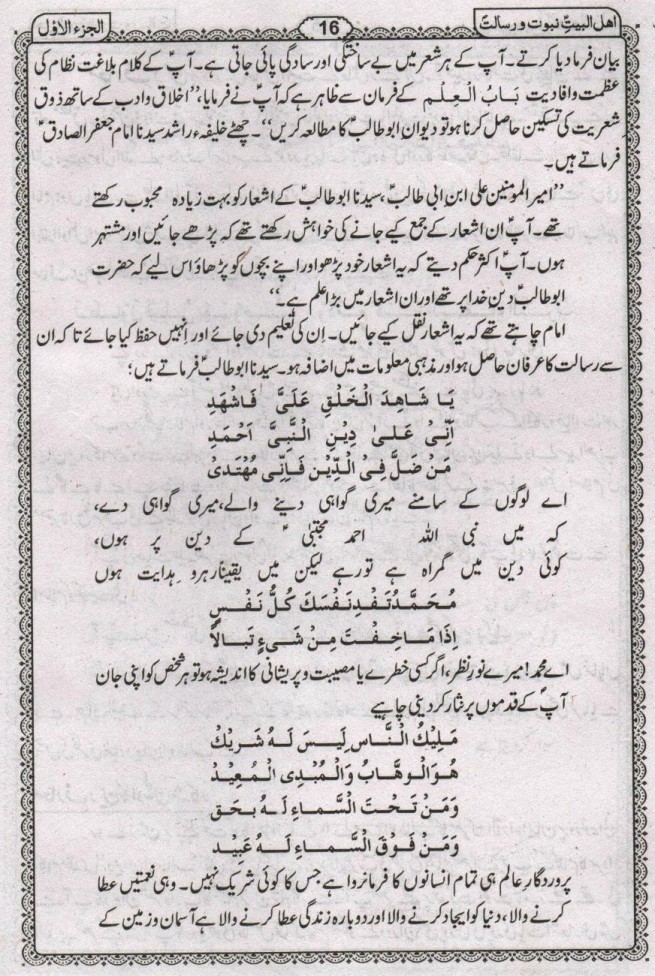 اهل البيتِ نبوت و رسالت 16 الجزء الاوّل
بیان فرما دیا کرتے۔ آپ کے ہر شعر میں بے ساختگی اور سادگی پائی جاتی ہے۔ آپؑ کے کلام بلاغت نظام کی
عظمت و افادیت بَابُ الْعِلْم کے فرمان سے ظاہر ہے کہ آپؑ نے فرمایا،’’اخلاق وادب کے ساتھ ذوق
شعریت کی تسکین حاصل کرنا ہو تو دیوان ابو طالبؑ کا مطالعہ کریں‘‘۔ چھٹے خلیفہء راشد سیدنا امام جعفر الصادقؑ
فرماتے ہیں۔
’’امیر المومنین علی ابن ابی طالبؑ، سیدنا ابو طالبؑ کے اشعار کو بہت زیادہ محبوب رکھتے
تھے۔ آپؑ ان اشعار کے جمع کیے جانے کی خواہش رکھتے تھے کہ پڑھے جائیں اور مشتہر
ہوں۔ آپؑ اکثر حکم دیتے کہ یہ اشعار خود پڑھو اور اپنے بچوں کو پڑھاؤ اس لیے کہ حضرت
ابو طالبؑ دین خدا پر تھے اور ان اشعار میں بڑا علم ہے۔‘‘
امام چاہتے تھے کہ یہ اشعار نقل کیے جائیں۔ اِن کی تعلیم دی جائے اور اِنہیں حفظ کیا جائے تا کہ ان
سے رسالت کا عرفان حاصل ہو اور مذہبی معلومات میں اضافہ ہو۔ سیدنا ابو طالبؑ فرماتے ہیں؛
يَا شَاهِدَ الْخَلْقِ عَلَيَّ فَاشْهَدِ
اِنِّىْ عَلٰى دِيْنِ النَّبِىِّ اَحْمَدِ
مَنْ ضَلَّ فِى الدِّيْنِ فَاِنِّى مُهْتَدِىْ
اے لوگوں کے سامنے میری گواہی دینے والے،میری گواہی دے،
کہ میں نبی اللہ احمد مجتبیٰؐ کے دین پر ہوں،
کوئی دین میں گمراہ ہے تو رہے لیکن میں یقیناً رہروِ ہدایت ہوں
مُحَمَّدُ تَفْدِ نَفْسَكَ كُلُّ نَفْسٍ
اِذَا مَا خِفْتَ مِنْ شَىْءٍ تَبَالًا
اے محمدؐ! میرے نورِ نظر، اگر کسی خطرے یا مصیبت و پریشانی کا اندیشہ ہو تو ہر شخص کو اپنی جان
آپؐ کے قدموں پر نثار کر دینی چاہیے
مَلِيْكُ النَّاسِ لَيْسَ لَهُ شَرِيْكٌ
هُوَ الْوَهَّابُ وَالْمُبْدِى الْمُعِيْدُ
وَمَنْ تَحْتَ السَّمَاءِ لَهُ بِحَقٍ
وَمَنْ فَوْقَ السَّمَاءِ لَهُ عَبِيْدٌ
پروردگارِ عالم ہی تمام انسانوں کا فرمانروا ہے جس کا کوئی شریک نہیں۔ وہی نعمتیں عطا
کرنے والا، دنیا کو ایجاد کرنے والا اور دوبارہ زندگی عطا کرنے والا ہے آسمان و زمین کے